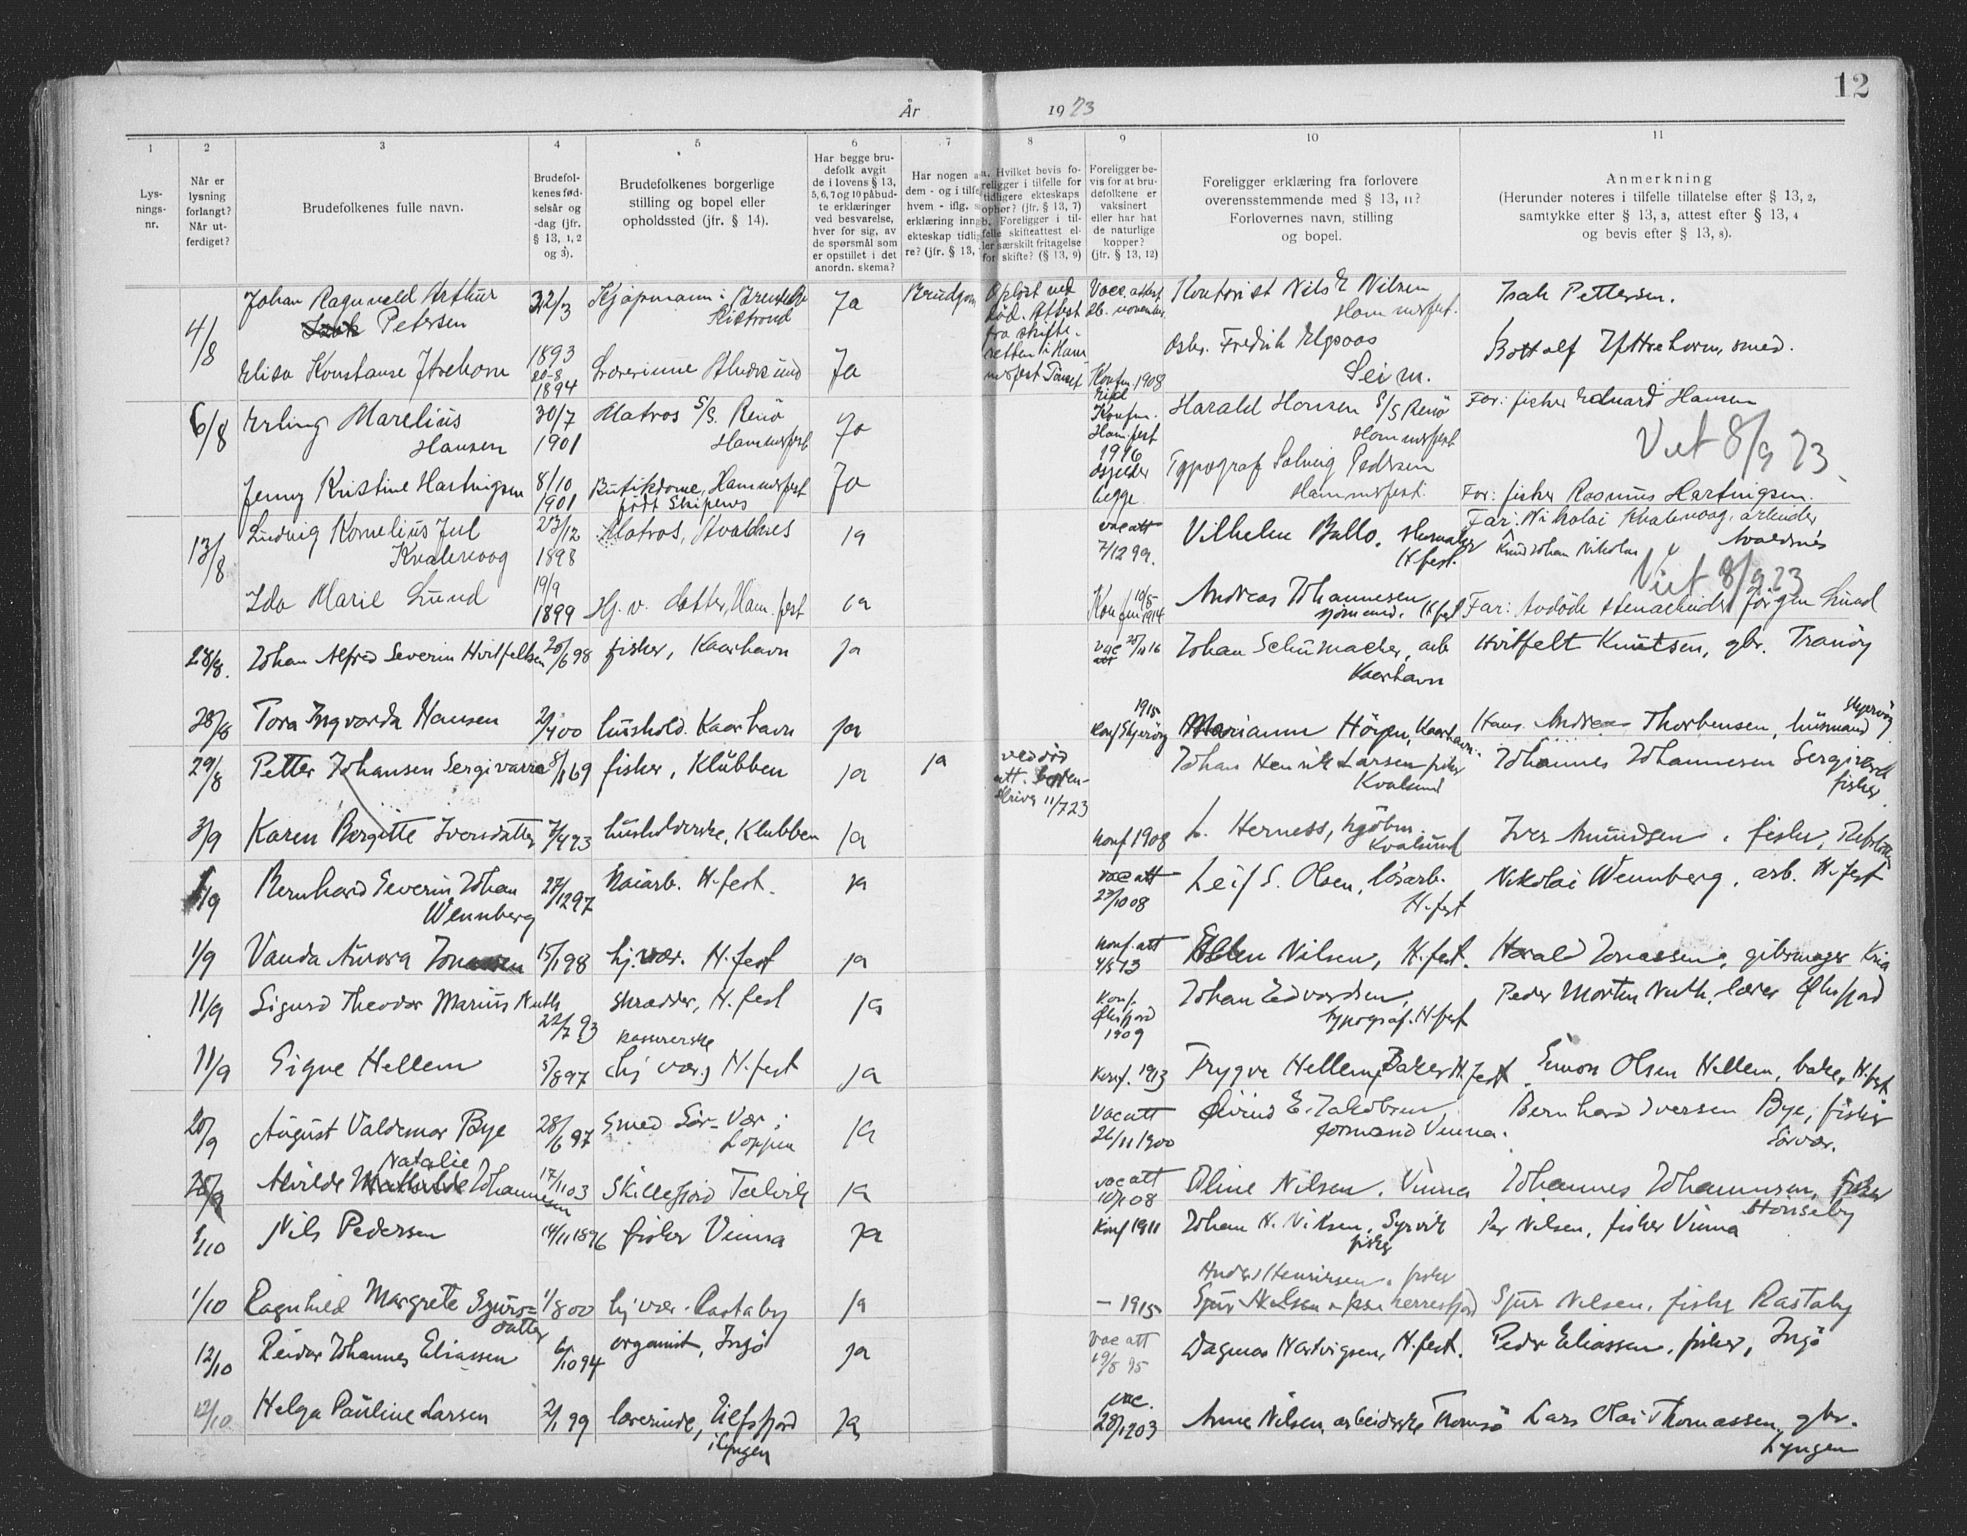 12
År 1923
1 2 3 4 5 6 7 8 9 10 11
Lys-
nings-
nr.
Når er
lysning
forlangt?
Når ut-
ferdiget?
Brudefolkenes fulle navn.
Brudefol-
kenes fød-
selsår og
-dag (jfr.
§ 13, 1, 2
og 3).
Brudefolkenes borgerlige
stilling og bopel eller
opholdssted (jfr. § 14).
Har begge bru-
defolk avgit
de i lovens § 13,
5, 6, 7 og 10 påbud-
te erklæringer
ved besvarelse,
hver for sig, av
de spørsmål som
er opstillet i det
anordn. skema?
Har nogen a
dem - og i tilfe
hvem - iflg. s
erklæring inng
ekteskap tidlig
re? (jfr. § 13,
a. Hvilket bevis fo-
religger i tilfelle for
tidligere ekteskaps
ophør? (jfr. § 13, 7)
b. Foreligger i til-
felle skifteattest el-
ler særskilt fritagelse
for skifte? (§ 13, 9)
Foreligger be-
vis for at bru-
defolkene er
vaksinert
eller har hat
de naturlige
kopper?
(jfr. § 13, 12)
Foreligger erklæring fra forlovere
overensstemmende med § 13, 11?
Forlovernes navn, stilling
og bopel.
Anmerkning
(Herunder noteres i tilfelle tillatelse efter § 13, 2,
samtykke efter § 13, 3, attest efter § 13, 4
og bevis efter § 13, 8).
4/8 Johan Ragnvald Arthur 22/3 Kjøpmann i Ja Brudgom Opløst ved Vacc. attest Kontorist Nils E Nilsen Isak Pettersen.
Petersen 1893 Kistrand død. Attest Hammerfest.
fra skifte-
Elisa Konstanse Ytrehorn 20-8 1894 Lærerinne Ja retten i Ham Konfm. 1908 Fredrik Seim. Bottolf Yttrehorn, smed.
6/8 Erling Marelius 30/7 Matros S/S. Renø Ja Konfm. Harald Hansen S/S Renø Far: fisker Edvard Hansen
Hansen 1901 Hammerfest Ham.fest 1916 Hammerfest Viet 8/9 23
Jenny Kristine Hartvigsen 8/10 1901 Butikdame, Hammerfest Ja Typograf Solveig Pedersen
født Hammerfest. Far: fisker Rasmus Hartvigsen.
13/8 Ludvig Kornelius Jul 23/12 Matros, Avaldsnes ja vac att Vilhelm Ballo. Far: Nikolai Kvalevaag, arbeider,
Kvalevaag 1898 7/12 99. H.fest. Johan Nikolai Avaldsnes
Viet 8/9 23
Ida Marie Lund 19/9 1899 Hj. v. datter, Ham.fest ja Konfm 1914 Andreas Johannesen Far: avdøde stenarbeider Jørgen Lund
sjømand. H.fest
28/8. Johan Alfred Severin Hvitfeltsen 20/6 98 fisker, Kaarhavn ja vac att 16 Johan Schumacher, arb Hvitfelt Knutsen, gbr. Tranøy
Kaarhavn
28/8 Tora Ingvarda Hansen 2/4 00 hushold. Kaarhavn ja 1915 Konf Skjervøy Marianne Høyen, Kaarhavn. Hans Andreas Thorbensen, husmand Skjervøy
29/8 Petter Johansen Sergivarre 8/1 69 fisker, Klubben ja ja ved død Johan Henrik Larsen fisker Johannes Johannesen Sergivarre
att. 11/7 23 Kvalsund fisker.
3/9 Karen Borgitte Iversdatter husholderske, Klubben ja Konf 1908 L. Herness, Kvalsund Iver Amundsen, fisker,
1/9 Bernhard Severin Johan 27/12 97 Kaiarb. H.fest. ja vac att Leif S. Olsen, løsarb. Nikolai Wennberg, arb. H.fest
Wennberg 23/10 08 H.fest
1/9 Vanda Aurora Jonassen 15/1 98 hj. vær. H.fest ja Konf. att 4/5 13 Ellen Nilsen, H.fest. Harald Jonassen, gibsmager Kria
11/9 Sigurd Theodor Marius Nuth 22/7 93 skrædder, H.fest ja Konf. Øksfjord 1909 Johan Edvardsen, Peder Morten Nuth, lærer Øksfjord
typograf. H.fest
kassererske
11/9 Signe Hellem 5/8 97 hj vær, H.fest ja Konf. 1913 Trygve Hellem, Baker H.fest. Simon Olsen Hellem, baker, H.fest
20/9 August Valdemar Bye 28/6 97 Smed Sør-Vær i ja Vac att Øivind E. Jakobsen, Bernhard Iversen Bye, fisker
Loppen 26/11 1900 formand Vinna. Sørvær.
Natalie
20/9 Alvilde Johannesen 17/11 03 Skillefjord Talvik ja vac att 10/1 08 Oline Nilsen. Vinna Johannes Johannesen, fisker
1/10 Nils Pedersen 14/11 1896 fisker Vinna ja Konf 1911 Johan N. Nilsen, fisker Per Nilsen, fisker Vinna
Anders Henriksen. fisker
1/10 Ragnhild Margrete Sjurs= 1/8 00 hj vær. Rastaby ja - 1915 Sjur Nilsen Sjur Nilsen, fisker Rastaby
datter
12/10 Reidar Johannes Eliassen 6/10 94 organist, Ingø ja Vac att 19/8 95 Dagmar Hartvigsen, H.fest. Peder Eliassen, fisker, Ingø
12/10 Helga Pauline Larsen 2/1 99 lærerinde, ja vac. 28/12 03 Anne Nilsen, arbeiderske Tromsø Lars Olai Thomassen, gbr.
i Lyngen Lyngen